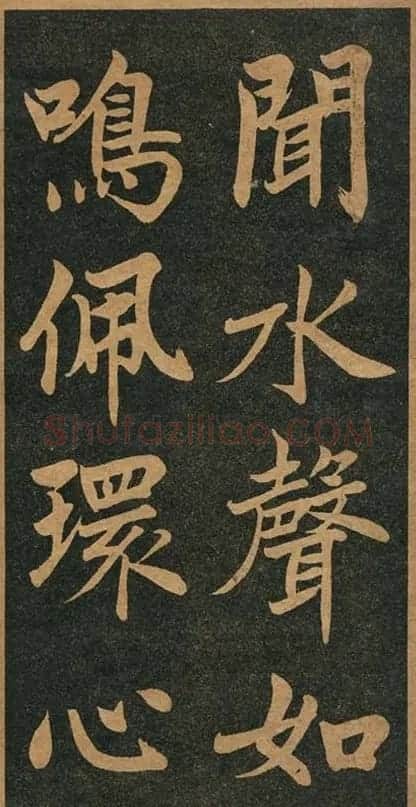 聞水聲如
鳴佩環心
Shufaziliao.COM